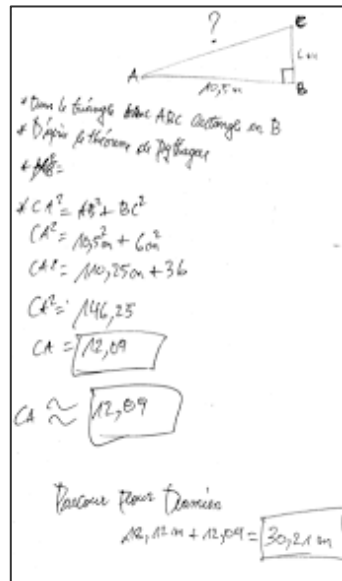 ?
C
6m
A
10,5m
B
* Dans le triangle ABC rectangle en B
* D'après le théorème de Pythagore
*
* CA² = AB² + BC²
CA² = 10,5m² + 6m²
CA² = 110,25m + 36
CA² = 146,25
CA = 12,09
CA ≈ 12,09
Parcour pour Damien
12m + 12,09 = 30,21m